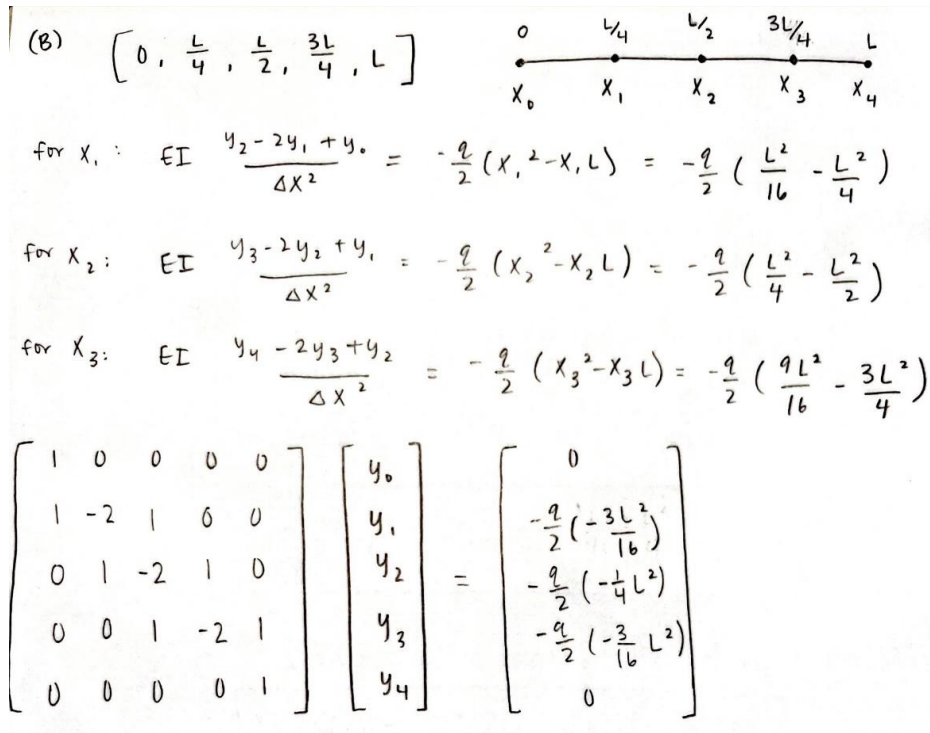 (B) [0, L/4, L/2, 3L/4, L]
0 L/4 L/2 3L/4 L
X₀ X₁ X₂ X₃ X₄
for X₁: EI (y₂ - 2y₁ + y₀)/ΔX² = -q/2 (X₁² - X₁L) = -q/2 (L²/16 - L²/4)
for X₂: EI (y₃ - 2y₂ + y₁)/ΔX² = -q/2 (X₂² - X₂L) = -q/2 (L²/4 - L²/2)
for X₃: EI (y₄ - 2y₃ + y₂)/ΔX² = -q/2 (X₃² - X₃L) = -q/2 (9L²/16 - 3L²/4)
1 0 0 0 0 y₀ 0
1 -2 1 0 0 y₁ -q/2 (-3L²/16)
0 1 -2 1 0 y₂ = -q/2 (-1/4 L²)
0 0 1 -2 1 y₃ -q/2 (-3/16 L²)
0 0 0 0 1 y₄ 0